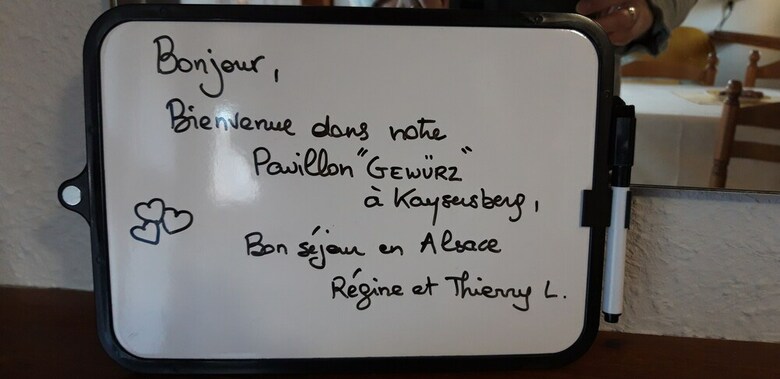 Bonjour,
Bienvenue dans notre
Pavillon "GEWÜRZ"
à Kaysersberg,
Bon séjour en Alsace
Régine et Thierry L.